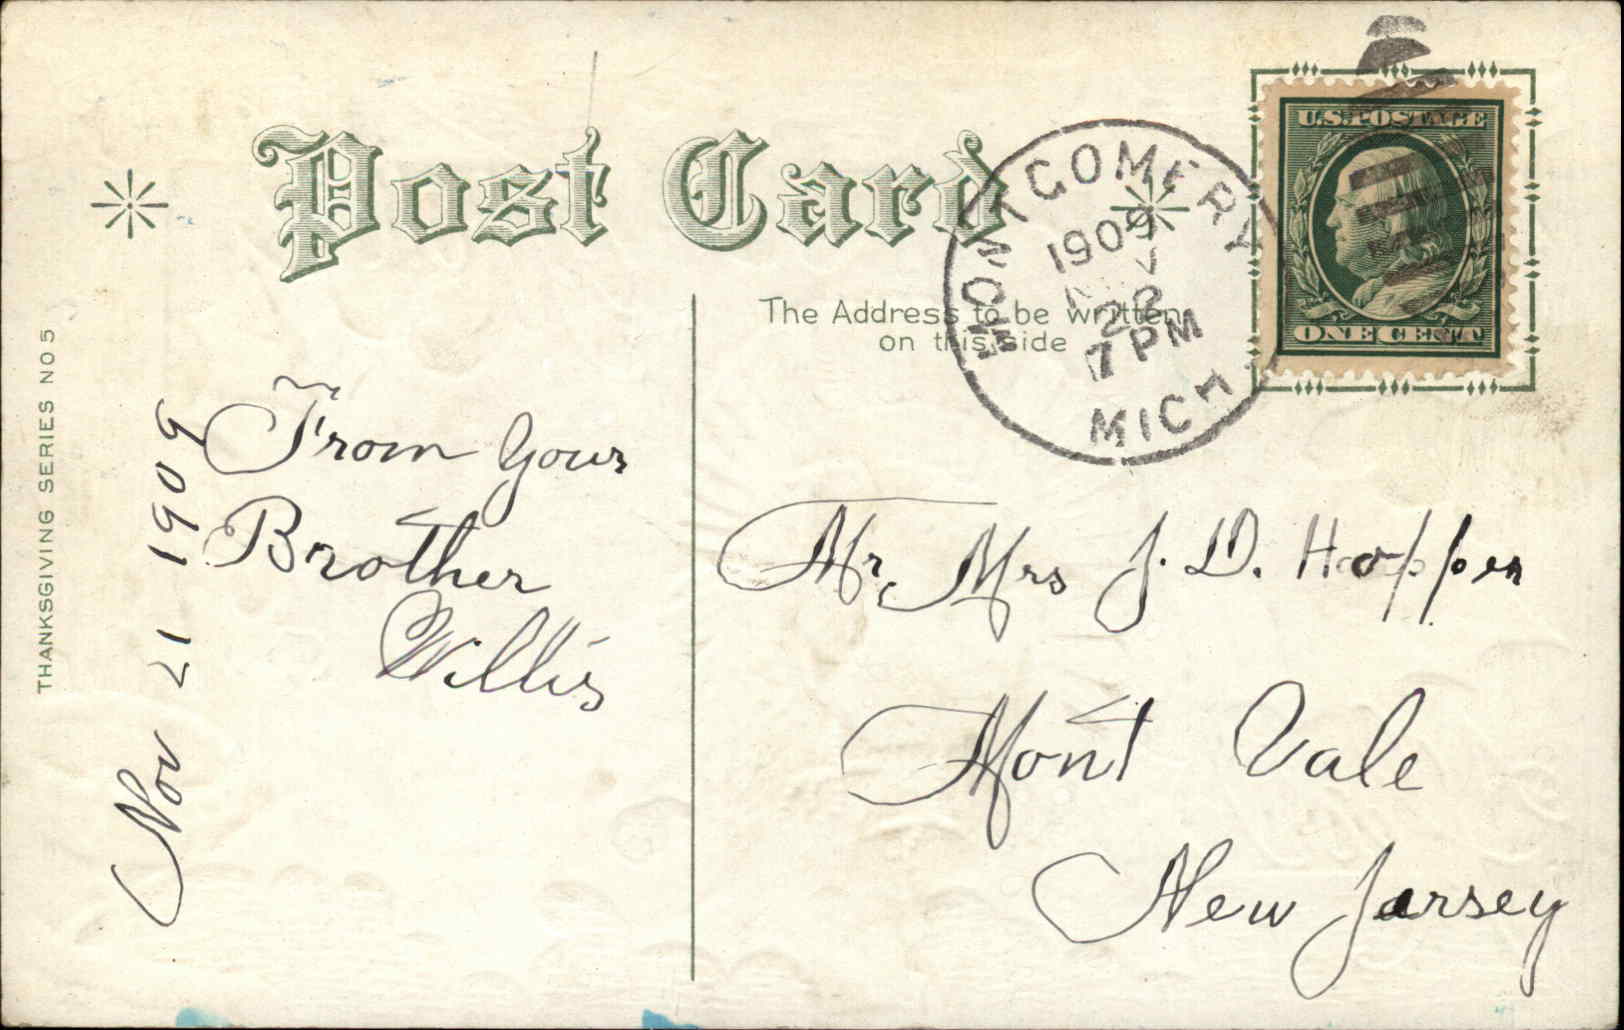 Post Card
The Address to be written
on this side
THANKSGIVING SERIES NO 5
MONTGOMERY
1909
22
7 PM
MICH
U.S. POSTAGE
ONE CENT
Nov 21 1909
From your
Brother
Willis
Mr, Mrs J. D. Hopper
Mont Vale
New Jersey